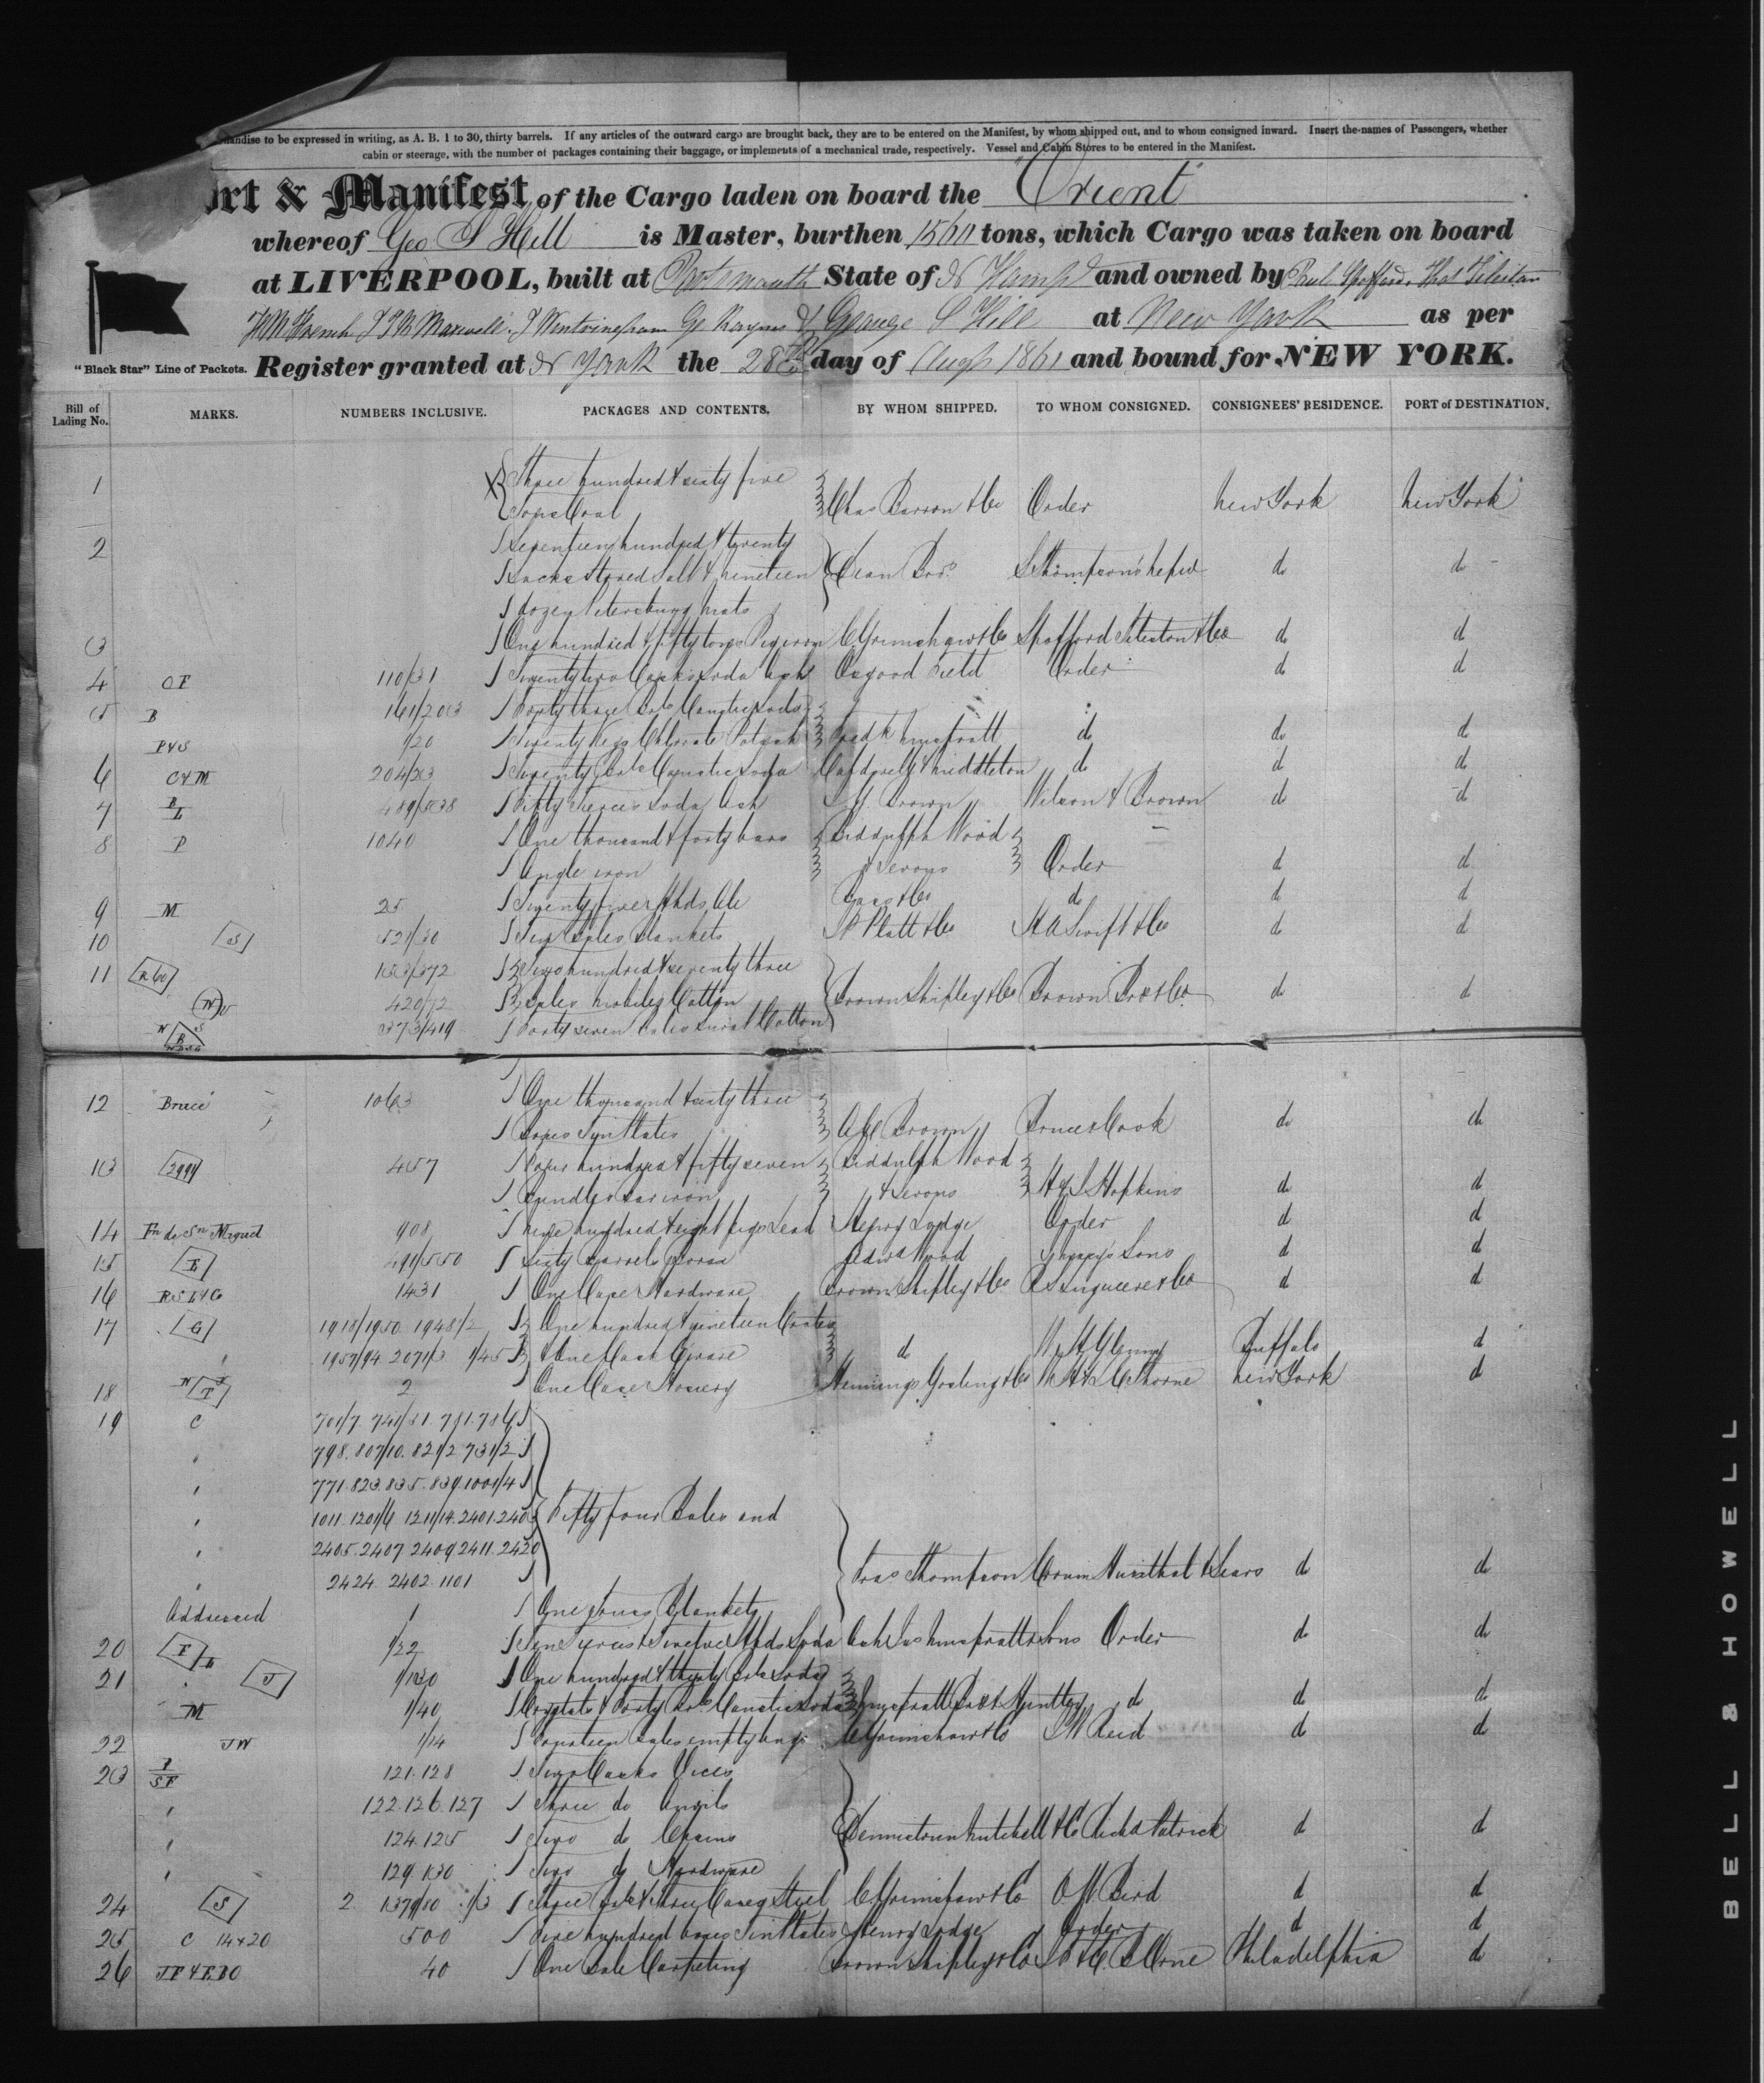 handise to be expressed in writing, as A. B. 1 to 30, thirty barrels. If any articles of the outward cargo are brought back, they are to be entered on the Manifest, by whom shipped out, and to whom consigned inward. Insert the names of Passengers, whether
cabin or steerage, with the number of packages containing their baggage, or implements of a mechanical trade, respectively. Vessel and Cabin Stores to be entered in the Manifest.
ort & Manifest of the Cargo laden on board the "Orient"
whereof Geo S Hill is Master, burthen 1560 tons, which Cargo was taken on board
at LIVERPOOL, built at Portsmouth State of N Hamp and owned by Paul Spofford, Thos Tileston
French J B Maxwell, J Wintringham Geo Raynes & George S Hill at New York as per
"Black Star" Line of Packets. Register granted at N York the 28th day of Augt 1861 and bound for NEW YORK.
Bill of Lading No. MARKS. NUMBERS INCLUSIVE. PACKAGES AND CONTENTS. BY WHOM SHIPPED. TO WHOM CONSIGNED. CONSIGNEES' RESIDENCE. PORT of DESTINATION.
1 Three hundred & sixty five
Tons Coal Chas Barron & Co Order New York New York
2 Seventeen hundred & twenty
Sacks Stoved Salt & nineteen Dean Bros. Thompson's nephew do do
dozen Petersburg mats
3 One hundred & fifty tons Pig iron C Grimshaw & Co Spofford Tileston & Co do do
4 OF 110/31 Twenty two Casks Soda Ash Osgood Field Order do do
5 B 161/203 Forty three Brls Caustic Soda
P&S 1/20 Twenty Kegs Chlorate Potash Fredk Muspratt do do do
6 C&M 204/23 Twenty Brls Caustic Soda Cardwell & Middleton do do do
7 B L 489/538 Fifty Tierces Soda Ash Brown Wilson & Brown do do
8 P 1040 One thousand & forty bars Biddulph Wood
Angle iron & Jevons Order do do
9 M 25 Twenty five Hhds Ale Bass & Co do do do
10 S 521/30 Ten Bales Blankets Platt & Co H A Swift & Co do do
11 R60 Two hundred & seventy three
M 420/72 Bales Mobile Cotton Brown Shipley & Co Brown Bros & Co do do
N B S 373/419 Forty seven Bales Surat Cotton
12 "Bruce" 1063 One thousand & sixty three
Boxes Tin Plates Brown Bruce & Cook do do
13 2991 457 Four hundred & fifty seven Biddulph Wood
Bundles Bar iron & Jevons Hopkins do do
14 Fn de Sn Miguel 908 Nine hundred & eight pigs Lead Henry Lodge Order do do
15 E 491/550 Sixty Barrels Edwd Wood Sons do do
16 RSL&Co 1431 One Case Hardware Brown Shipley & Co do do
17 G 1918/1950 1948/2 One hundred & nineteen Crates
" 1957/94 2071/3 1/45 & One Cask Ware do W H Glenny Buffalo do
18 N T S 2 One Case Hosiery Hemings Gosling & Co Thorne New York do
19 C 701/7. 741/51. 781. 786
" 798. 807/10. 821/2 731/2
" 771. 823. 835. 839. 1001/4
" 1011. 1201/6 1211/14. 2401. 2403 Fifty four Bales and
" 2405. 2407 2409 2411. 2420
" 2424. 2402. 1101 Fras Thompson & Sears do do
Addressed 1 One Truss Blankets
20 F B 1/22 Ten Tierces & Twelve Hhds Soda Ash Jas Muspratt & Sons Order do do
21 " J 1/130 One hundred & thirty Brls Soda
M 1/40 Crystals & Forty Drs Caustic Soda Muspratt Bros & Huntley do do do
22 JW 1/14 Fourteen Bales empty bags C Grimshaw & Co Reid do do
23 P SF 121. 128 Two Casks Vices
" 122. 126. 127 Three do Anvils
" 124. 125 Two do Chains Dennistoun Mitchell & Co Richd Patrick do do
" 129. 130 Two do Hardware
24 S 2 1379/80 1/3 Three & Three Cases Steel C Grimshaw & Co O W Bird do do
25 C 14x20 500 Five hundred boxes Tin Plates Henry Lodge Order do do
26 JF&EBO 40 One Bale Carpeting Brown Shipley & Co Orne Philadelphia do
BELL & HOWELL